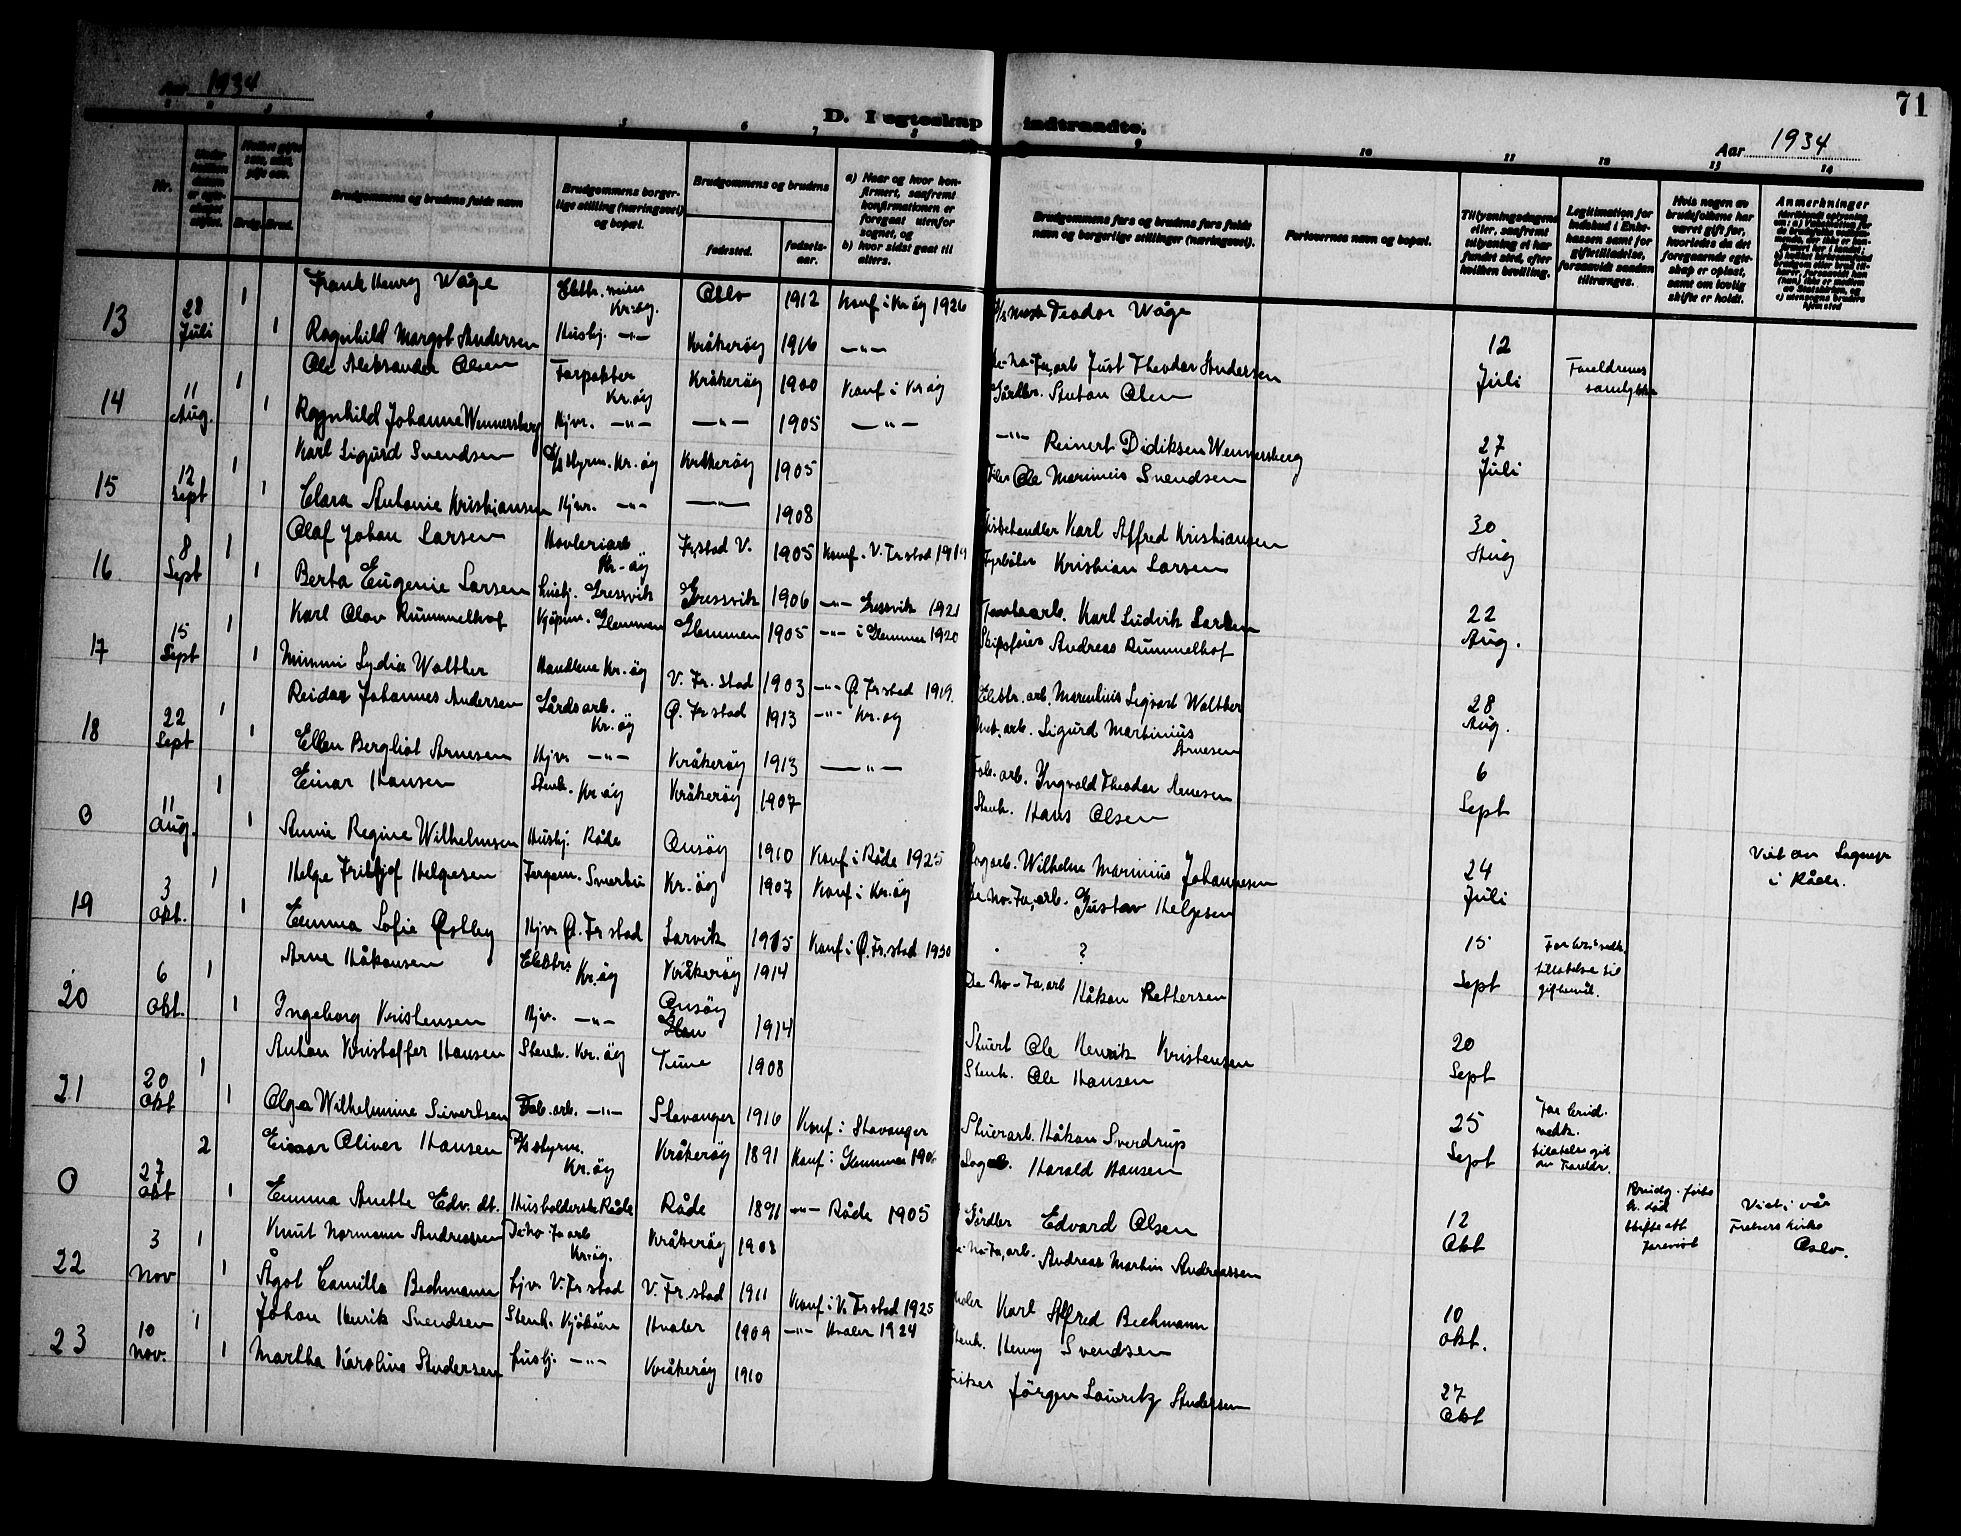 1934
D. I egteskap indtraadte.
71
Aar 1934
Nr.
Brudg. Brud.
Brudgommens og brudens fulde navn
Brudgommens borgerlige stilling (næringsvei) og bopæl.
Brudgommens og brudens
fødested.
fødselsaar.
a) Naar og hvor konfirmert, saafremt konfirmationen er foregaat utenfor sognet, og
b) hvor sidst gaat til alters.
Brudgommens fars og brudens fars fulde navn og borgerlige stillinger (næringsvei).
Forlovernes navn og bopæl.
Tillysningsdagene eller, saafremt tillysning ei har fundet sted, efter hvilken bevilling.
Hvis nogen av brudefolkene har været gift før, hvorledes da det foregaaende egteskap er opløst, samt om lovlig skifte er holdt.
Anmerkninger
13 28 Juli
1 Frank Henry Wåge Kr.øy. Oslo 1912 Konf i Kr.øy 1926 Teodor Wåge
1 Ragnhild Margot Andersen Husbj. -"- Kråkerøy 1916 -"- Just Theodor Andersen 12 Juli Foreldrenes samtykke
14 11 Aug.
1 Ole Aleksander Olsen Forpakter Kr.øy Kråkerøy 1900 Konf i Kr.øy Gårdbr. Anton Olsen
1 Ragnhild Johanne Wennersberg Hjv. -"- -"- 1905 -"- -"- Reinert Didiksen Wennersberg 27 Juli
15 12 Sept
1 Karl Sigurd Svendsen Styrm. Kr.øy Kråkerøy 1905 Ole Marinius Svendsen
1 Clara Antonie Kristiansen Hjv. -"- -"- 1908 Karl Alfred Kristiansen 30 Aug
16 8 Sept
1 Olaf Johan Larsen Høvleriarb Kr.øy Fr.stad V. 1905 Konf. V. Fr.stad Fyrbøter Kristian Larsen
1 Berta Eugenie Larsen husbj. Gressvik Gressvik 1906 -"- Gressvik 1921 Karl Ludvik Larsen 22 Aug.
17 15 Sept
1 Karl Olav Rummelhof Kjøpm. Glemmen Glemmen 1905 -"- i Glemmen 1920 Andreas Rummelhof
1 Mimmi Lydia Walther Kr.øy V. Fr.stad 1903 -"- Ø Fr.stad 1919. Elektr. arb. Walther 28 Aug.
18 22 Sept
1 Reidar Johannes Andersen Gårdsarb. Kr.øy Ø. Fr.stad 1913 -"- Kr.øy Sigurd Martinius Arnesen
1 Ellen Bergliot Arnesen Hjv -"- Kråkerøy 1913 -"- Fab. arb. Yngvald Theodor Arnesen 6 Sept
0 11 Aug.
1 Einar Hansen Stenh. Kr.øy Kråkerøy 1907 Stenh. Hans Olsen
1 Annie Regine Wilhelmsen Husbj. Råde Onsøy 1910 Konf i Råde 1925 Wilhelm Marinius Johannesen 24 Juli Viet av Sognepr i Råde.
19 3 Okt.
1 Helge Fridtjof Helgesen Kr.øy 1907 Konf i Kr.øy De-No-Fa, arb. Gustav Helgesen
1 Emma Sofie Østby Hjv Ø. Fr.stad Larvik 1915 Konf i Ø. Fr.stad 1930 ? 15 Sept tillatelse til giftemål.
20 6 Okt.
1 Arne Håkonsen Elektr. Kr.øy Kråkerøy 1914 De-No-Fa, arb Håkon Pettersen
1 Ingeborg Kristensen Hjv. -"- Onsøy 1914 Stuert Ole Henrik Kristensen 20 Sept
21 20 Okt
1 Anton Kristoffer Hansen Stenh. Kr.øy Tune 1908 Stenh. Ole Hansen
1 Olga Wilhelmine Sivertsen Fab. arb. -"- Stavanger 1916 Konf i Stavanger Stuerarb. Håkon Sverdrup 25 Sept For brud. vedk. tillatelse git av Foreldr.
0 27 Okt
2 Einar Oliver Hansen Styrm. Kr.øy Kråkerøy 1891 Konf i Glemmen Harald Hansen
1 Emma Anette Edv. dt. Husholderske Råde Råde 1891 -"- Råde 1905 Gårdbr Edvard Olsen 12 Okt Brudg. h. død Skifte att. forevist Viet i vår Frelsers kirke Oslo.
22 3 Nov
1 Knut Normann Andreassen De-No-Fa arb Kr.øy. Kråkerøy 1908 De-No-Fa, arb. Andreas Martin Andreassen
1 Ågot Camilla Bechmann Hjv V. Fr.stad V. Fr.stad 1911 Konf i V. Fr.stad 1925 Karl Alfred Bechmann 10 Okt.
23 10 Nov.
1 Johan Henrik Svendsen Stenh. Kjøkøen Hvaler 1909 -"- Hvaler 1924 Stenh. Henry Svendsen
1 Martha Karoline Andersen husbj. -"- Kråkerøy 1910 Fisker Jörgen Lauritz Andersen 27 Okt